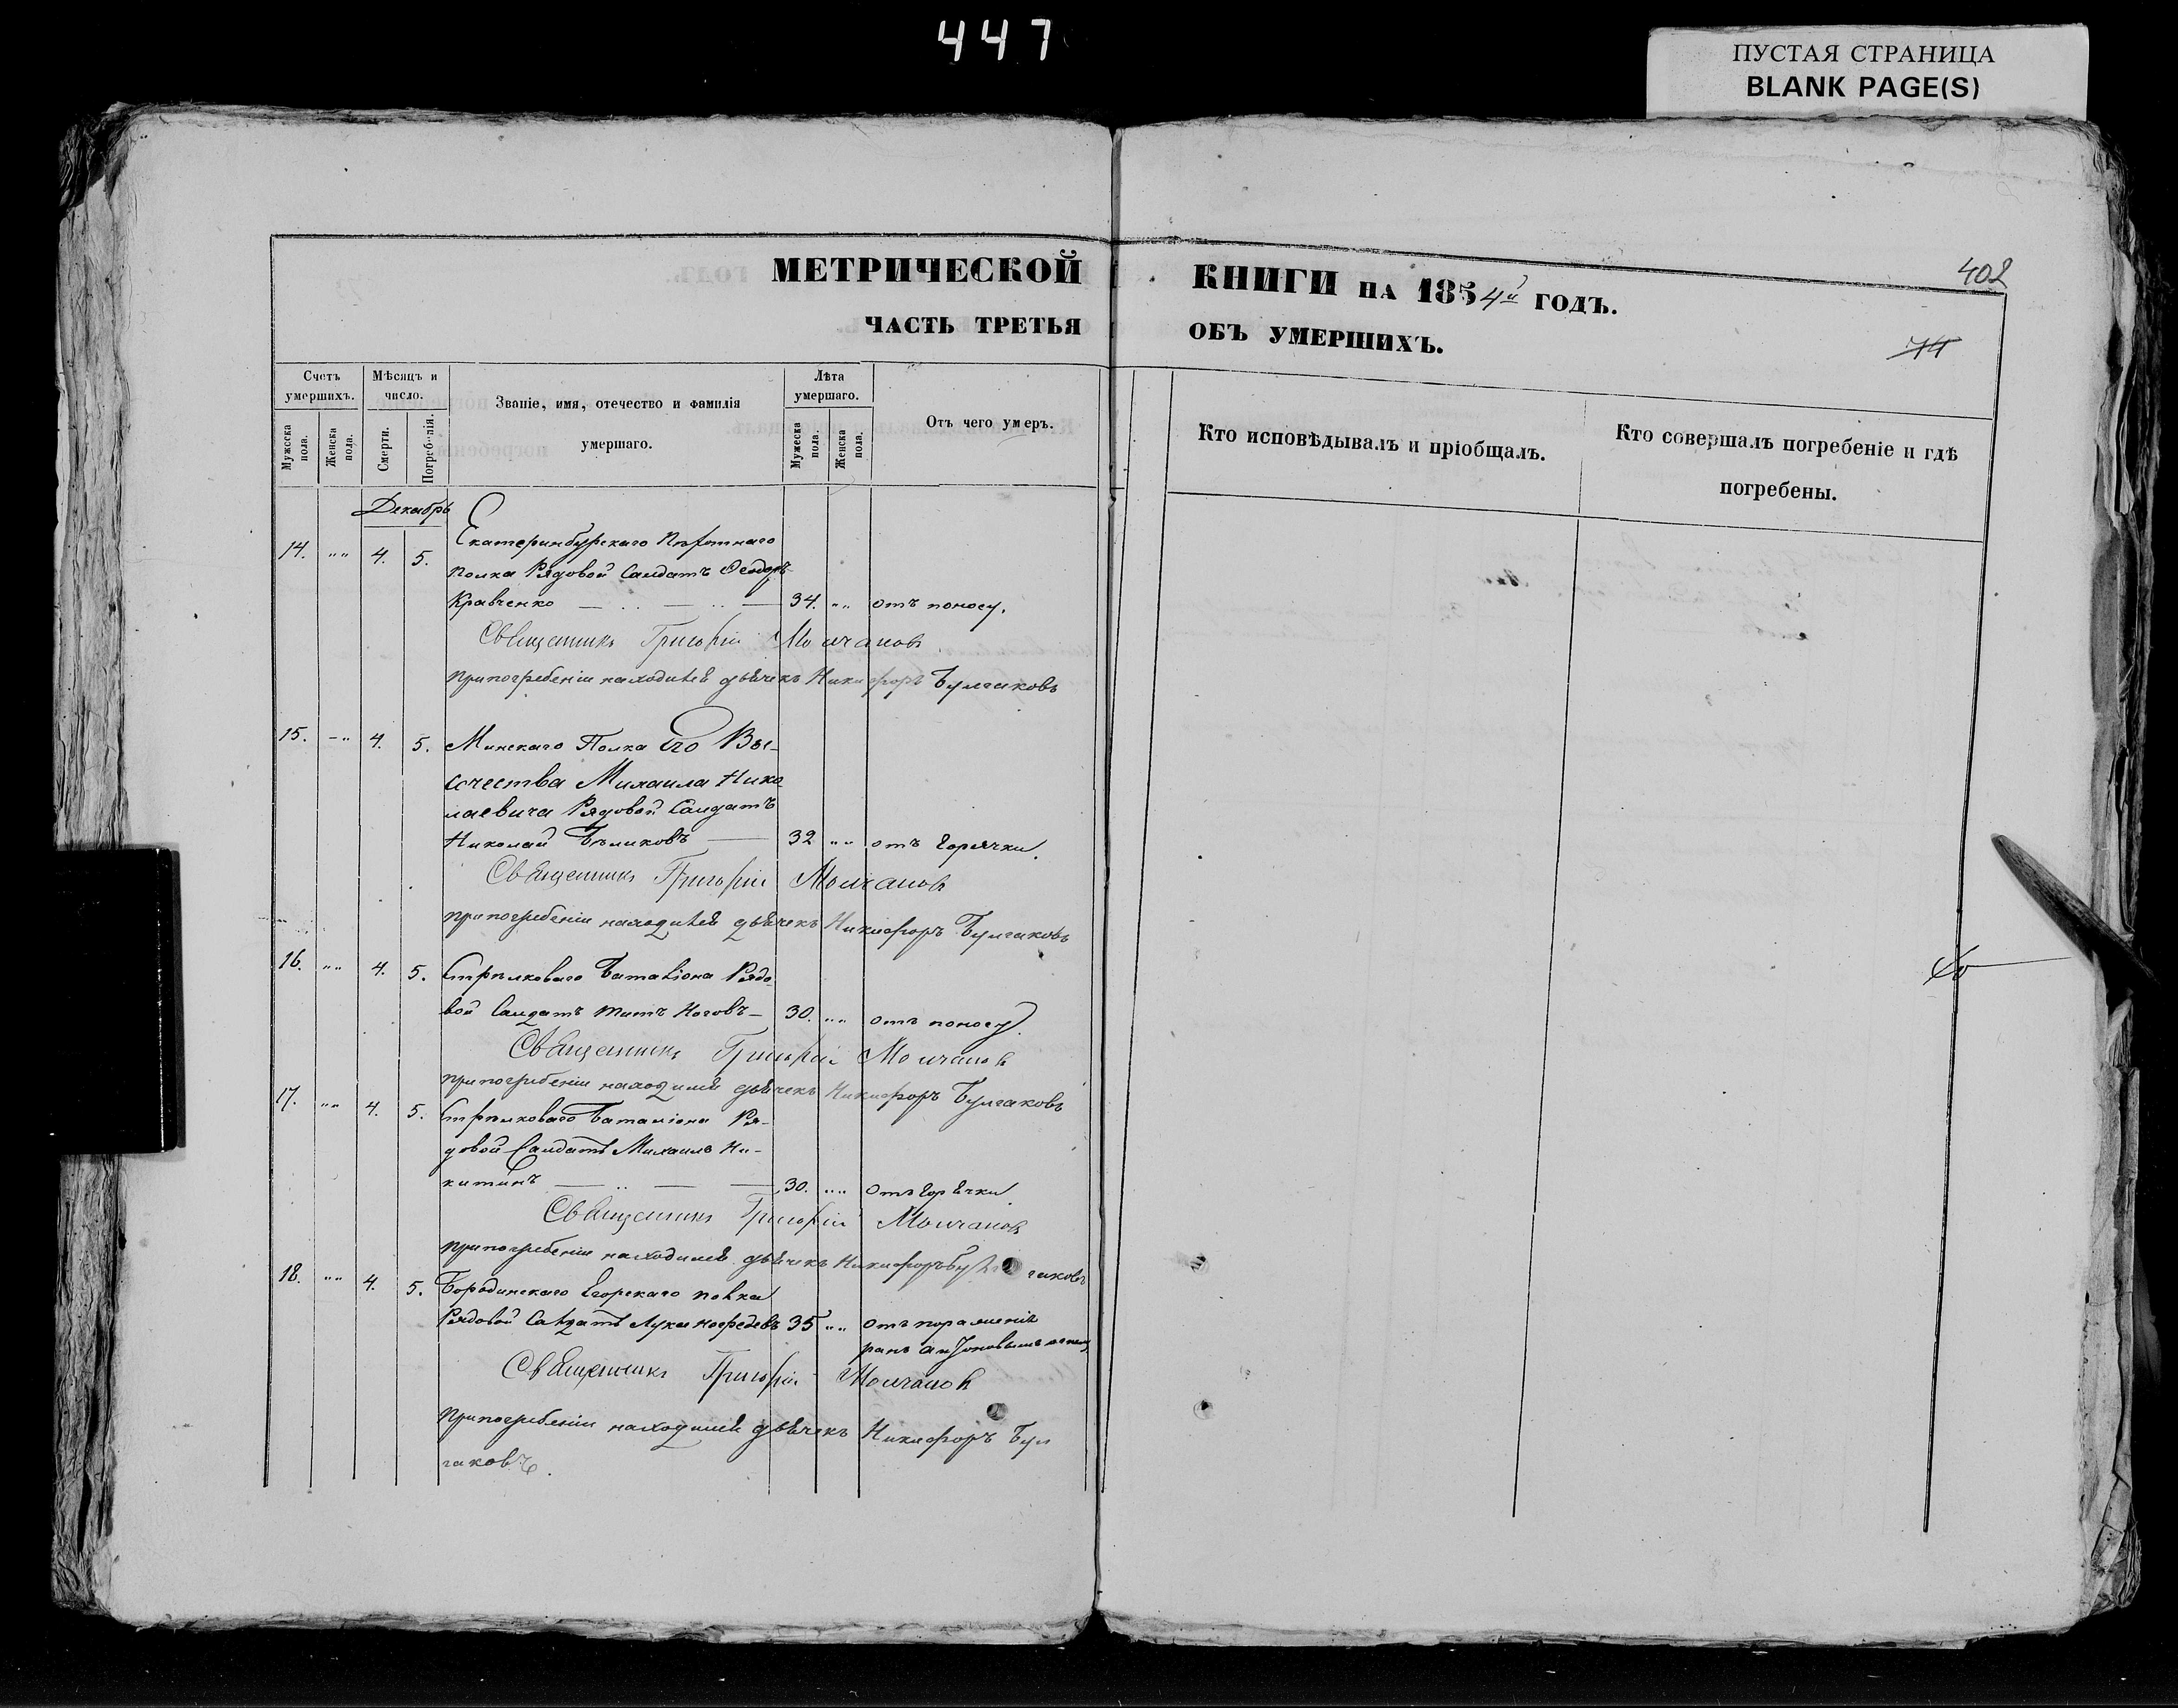 447
ПУСТАЯ СТРАНИЦА
BLANK PAGE(S)
МЕТРИЧЕСКОЙ КНИГИ НА 1854й ГОДЪ.
402
ЧАСТЬ ТРЕТЬЯ ОБЪ УМЕРШИХЪ.
Счетъ умершихъ.
Мужеска пола.
Женска пола.
Мѣсяцъ и число.
Смерти.
Погребенія.
Званіе, имя, отечество и фамилія
умершаго.
Лѣта умершаго.
Мужеска пола.
Женска пола.
Отъ чего умеръ.
Кто исповѣдывалъ и пріобщалъ.
Кто совершалъ погребеніе и гдѣ
погребены.
Декабрь
14. „„ 4. 5. Екатеринбурскаго Пѣхотнаго
полка Рядовой Салдатъ Ѳеодоръ
Кравченко 34. „„ отъ поносу.
Священникъ Григорій Молчановъ
При погребеніи находился дьячекъ Никифоръ Булгаковъ
15. -„ 4. 5. Минскаго Полка Его Вы-
сочества Михаила Нико
лаевича Рядовой Салдатъ
Николай Бѣликовъ 32 „„ отъ горячки.
Священникъ Григорій Молчановъ
При погребеніи находился дьячекъ Никифоръ Булгаковъ
16. „„ 4. 5. Стрѣлковаго Баталіона Рядо
вой Салдатъ Титъ 30. „„ отъ поносу.
Священникъ Григорій Молчановъ
При погребеніи находился дьячекъ Никифоръ Булгаковъ
17. „„ 4. 5. Стрѣлковаго Баталіона Ря-
довой Салдатъ Михаилъ Ни-
китинъ 30. „„ отъ горячки
Священникъ Григорій Молчановъ
При погребеніи находился дьячекъ Никифоръ Булгаковъ
18. „„ 4. 5. Бородинскаго Егорскаго полка
Рядовой Салдатъ Лука 35 „„ отъ пораженія
ранъ антоновымъ огнемъ
Священникъ Григорій Молчановъ
При погребеніи находился дьячекъ Никифоръ Бул
гаковъ.